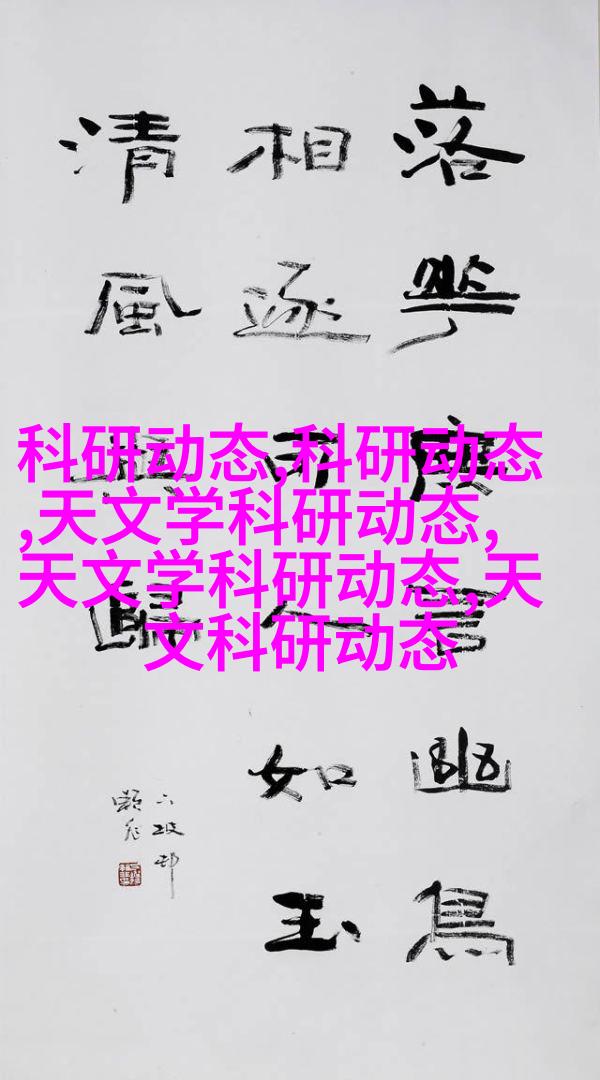 科研动态,科研动态
,天文学科研动态,
天文学科研动态,天
文科研动态
落華言幽鳥
相逐可人如玉
清風與歸